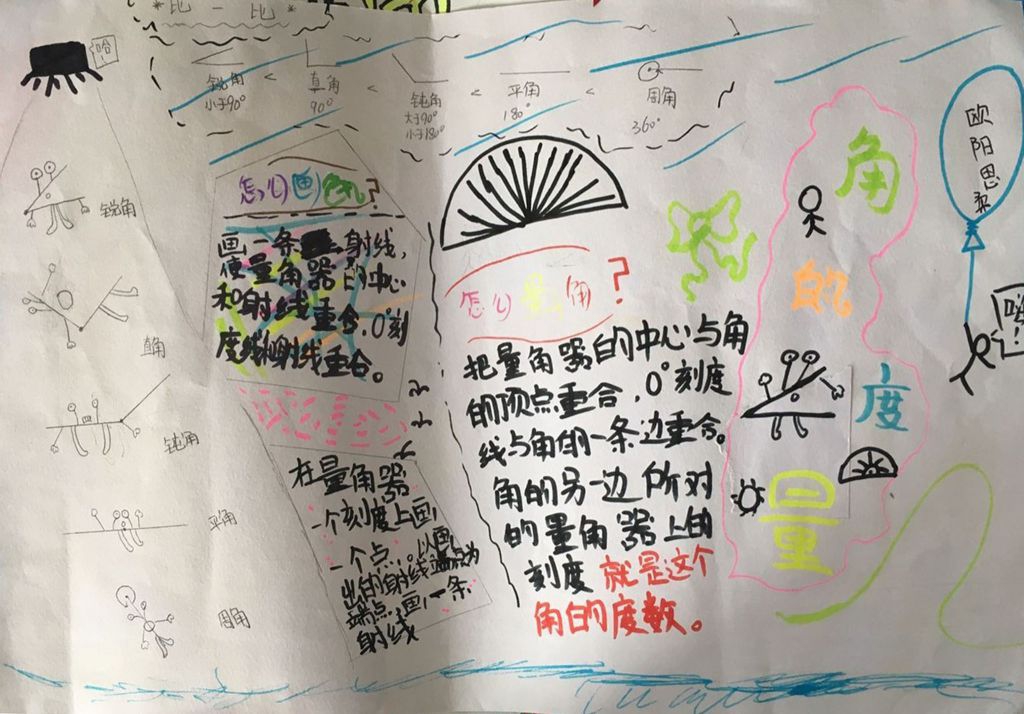 *比一比*
锐角 < 直角 < 钝角 < 平角 < 周角
小于90° 90° 大于90° 180° 360°
小于180°
哈
锐角
直角
钝角
平角
周角
怎么画角?
画一条射线,
使量角器的中心
和射线重合,0°刻
度线和射线重合。
在量角器
一个刻度上画
一个点。以画
出的射线端点为
端点,画一条
射线
怎么量角?
把量角器的中心与角
的顶点重合,0°刻度
线与角的一条边重合。
角的另一边所对
的量角器上的
刻度就是这个
角的度数。
角的度量
欧阳思